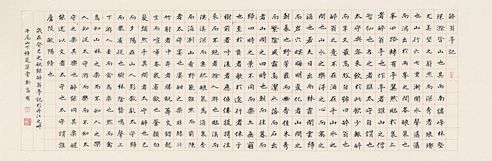 醉翁亭記
環滁皆山也其西南諸峰林壑
尤美望之蔚然而深秀者琅琊
也山行六七里漸聞水聲潺潺
而瀉出於兩峰之間者釀泉也
峰回路轉有亭翼然臨於泉上
者醉翁亭也作亭者誰山之僧
智仙也名之者誰太守自謂也
太守與客來飲於此飲少輒醉
而年又最高故自號曰醉翁也
醉翁之意不在酒在乎山水之
間也山水之樂得之心而寓之
酒也若夫日出而林霏開雲歸
而巖穴暝晦明變化者山間之
朝暮也野芳發而幽香佳木秀
而繁陰風霜高潔水落而石出
者山間之四時也朝而往暮而
歸四時之景不同而樂亦無窮
也至於負者歌於塗行者休於
樹前者呼後者應傴僂提攜往
來而不絕者滁人遊也臨溪而
漁溪深而魚肥釀泉為酒泉香
而酒洌山肴野蔌雜然而前陳
者太守宴也宴酣之樂非絲非
竹射者中弈者勝觥籌交錯起
坐而諠譁者眾賓歡也蒼顏白
髮頹然乎其間者太守醉也已
而夕陽在山人影散亂太守歸
而賓客從也樹林陰翳鳴聲上
下遊人去而禽鳥樂也然而禽
鳥知山林之樂而不知人之樂
人知從太守遊而樂而不知太
守之樂其樂也醉能同其樂醒
能述以文者太守也太守謂誰
廬陵歐陽修也